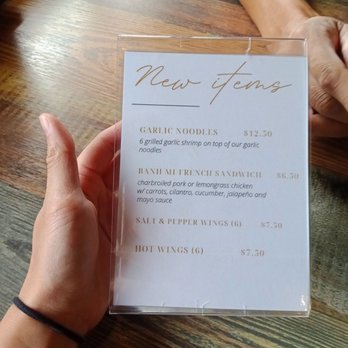 New items
GARLIC NOODLES $12.50
6 grilled garlic shrimp on top of our garlic
noodles
BANH MI FRENCH SANDWICH $6.50
charbroiled pork or lemongrass chicken
w/ carrots, cilantro, cucumber, jalapeño and
mayo sauce
SALT & PEPPER WINGS (6) $7.50
HOT WINGS (6) $7.50